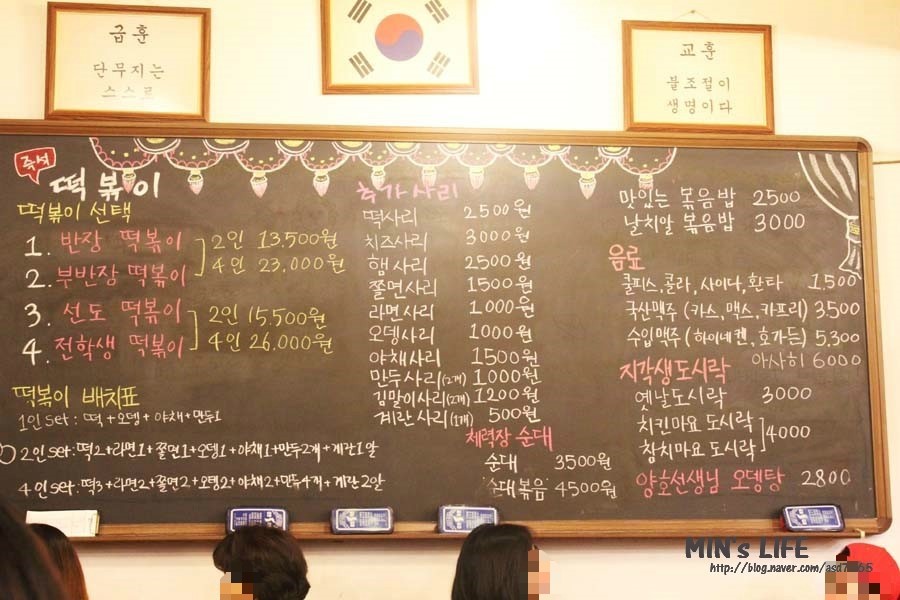 급훈
단무지는
스스로
교훈
불조절이
생명이다
즉석
떡볶이
떡볶이 선택
1. 반장 떡볶이
2. 부반장 떡볶이
2인 13,500원
4인 23,000원
3. 선도 떡볶이
4. 전학생 떡볶이
2인 15,500원
4인 26,000원
떡볶이 배치표
1인 set : 떡+오뎅+야채+만두1
2인 set : 떡2+라면1+쫄면1+오뎅1+야채1+만두2개+계란1알
4인 set : 떡3+라면2+쫄면2+오뎅2+야채2+만두4개+계란2알
추가 사리
떡사리 2500원
치즈사리 3000원
햄사리 2500원
쫄면사리 1500원
라면사리 1000원
오뎅사리 1000원
야채사리 1500원
만두사리(2개) 1000원
김말이사리(2개) 1200원
계란사리(1개) 500원
체력장 순대
순대 3500원
순대볶음 4500원
맛있는 볶음밥 2500
날치알 볶음밥 3000
음료
쿨피스, 콜라, 사이다, 환타 1,500
국산맥주 (카스, 맥스, 카프리) 3500
수입맥주 (하이네켄, 호가든) 5,300
아사히 6000
지각생도시락
옛날도시락 3000
치킨마요 도시락
참치마요 도시락
4000
양호선생님 오뎅탕 2800
MIN's LIFE